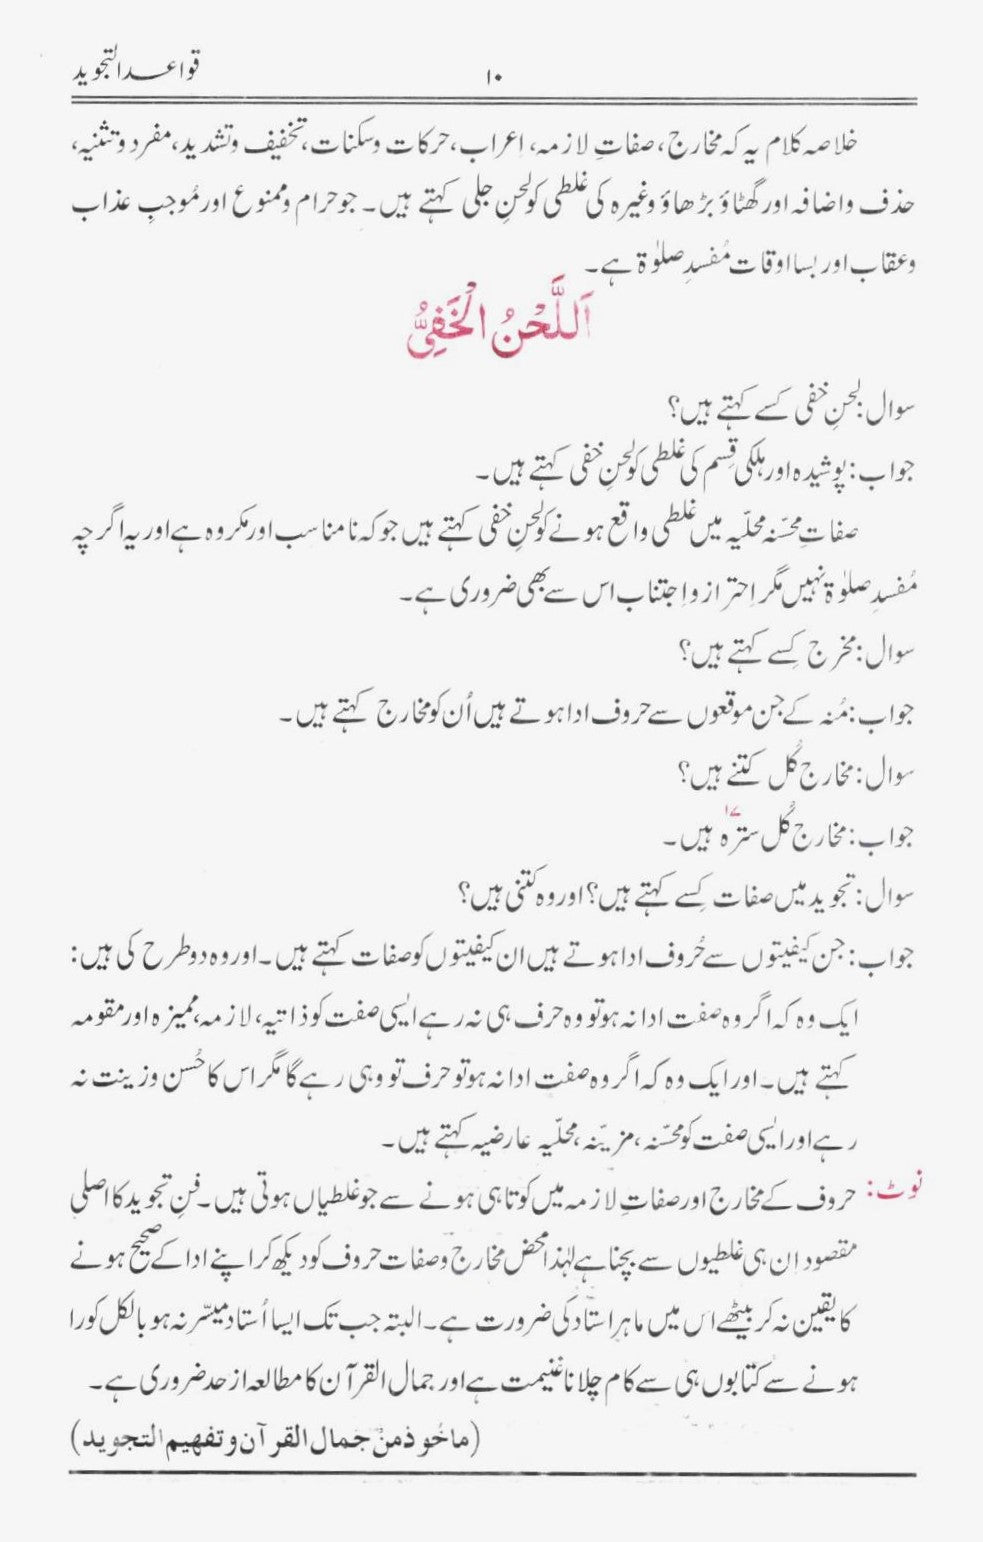 قواعد التجوید
۱۰
خلاصہ کلام یہ کہ مخارج، صفاتِ لازمہ، اِعراب، حرکات وسکنات، تخفیف وتشدید، مفرد وتثنیہ،
حذف واضافہ اور گھٹاؤ بڑھاؤ وغیرہ کی غلطی کو لحنِ جلی کہتے ہیں۔ جو حرام وممنوع اور مُوجبِ عذاب
وعقاب اور بسا اوقات مُفسدِ صلوٰۃ ہے۔
اَللَّحْنُ الْخَفِیُّ
سوال: لحنِ خفی کسے کہتے ہیں؟
جواب: پوشیدہ اور ہلکی قِسم کی غلطی کو لحنِ خفی کہتے ہیں۔
صفاتِ محسّنہ محلّیہ میں غلطی واقع ہونے کو لحنِ خفی کہتے ہیں جو کہ نامناسب اور مکروہ ہے اور یہ اگرچہ
مُفسدِ صلوٰۃ نہیں مگر اِحتراز واِجتناب اس سے بھی ضروری ہے۔
سوال: مخرج کِسے کہتے ہیں؟
جواب: مُنہ کے جن موقعوں سے حروف ادا ہوتے ہیں اُن کو مخارج کہتے ہیں۔
سوال: مخارج کُل کتنے ہیں؟
جواب: مخارج کُل سترہ ۱۷ ہیں۔
سوال: تجوید میں صفات کِسے کہتے ہیں؟ اور وہ کتنی ہیں؟
جواب: جن کیفیتوں سے حُروف ادا ہوتے ہیں ان کیفیتوں کو صفات کہتے ہیں۔ اور وہ دو طرح کی ہیں:
ایک وہ کہ اگر وہ صفت ادا نہ ہو تو وہ حرف ہی نہ رہے ایسی صفت کو ذاتیہ، لازمہ، ممیزہ اور مقومہ
کہتے ہیں۔ اور ایک وہ کہ اگر وہ صفت ادا نہ ہو تو حرف تو وہی رہے گا مگر اس کا حُسن وزینت نہ
رہے اور ایسی صفت کو محسّنہ، مزیّنہ، محلّیہ عارضیہ کہتے ہیں۔
نوٹ: حروف کے مخارج اور صفاتِ لازمہ میں کوتاہی ہونے سے جو غلطیاں ہوتی ہیں۔ فنِ تجوید کا اصلی
مقصود اِن ہی غلطیوں سے بچنا ہے لہٰذا محض مخارج وصفات حروف کو دیکھ کر اپنے ادا کے صحیح ہونے
کا یقین نہ کر بیٹھے اس میں ماہر استاد کی ضرورت ہے۔ البتہ جب تک ایسا اُستاد میسّر نہ ہو بالکل کورا
ہونے سے کتابوں ہی سے کام چلانا غنیمت ہے اور جمال القرآن کا مطالعہ از حد ضروری ہے۔
(ماخوذ من جمال القرآن و تفهیم التجوید)